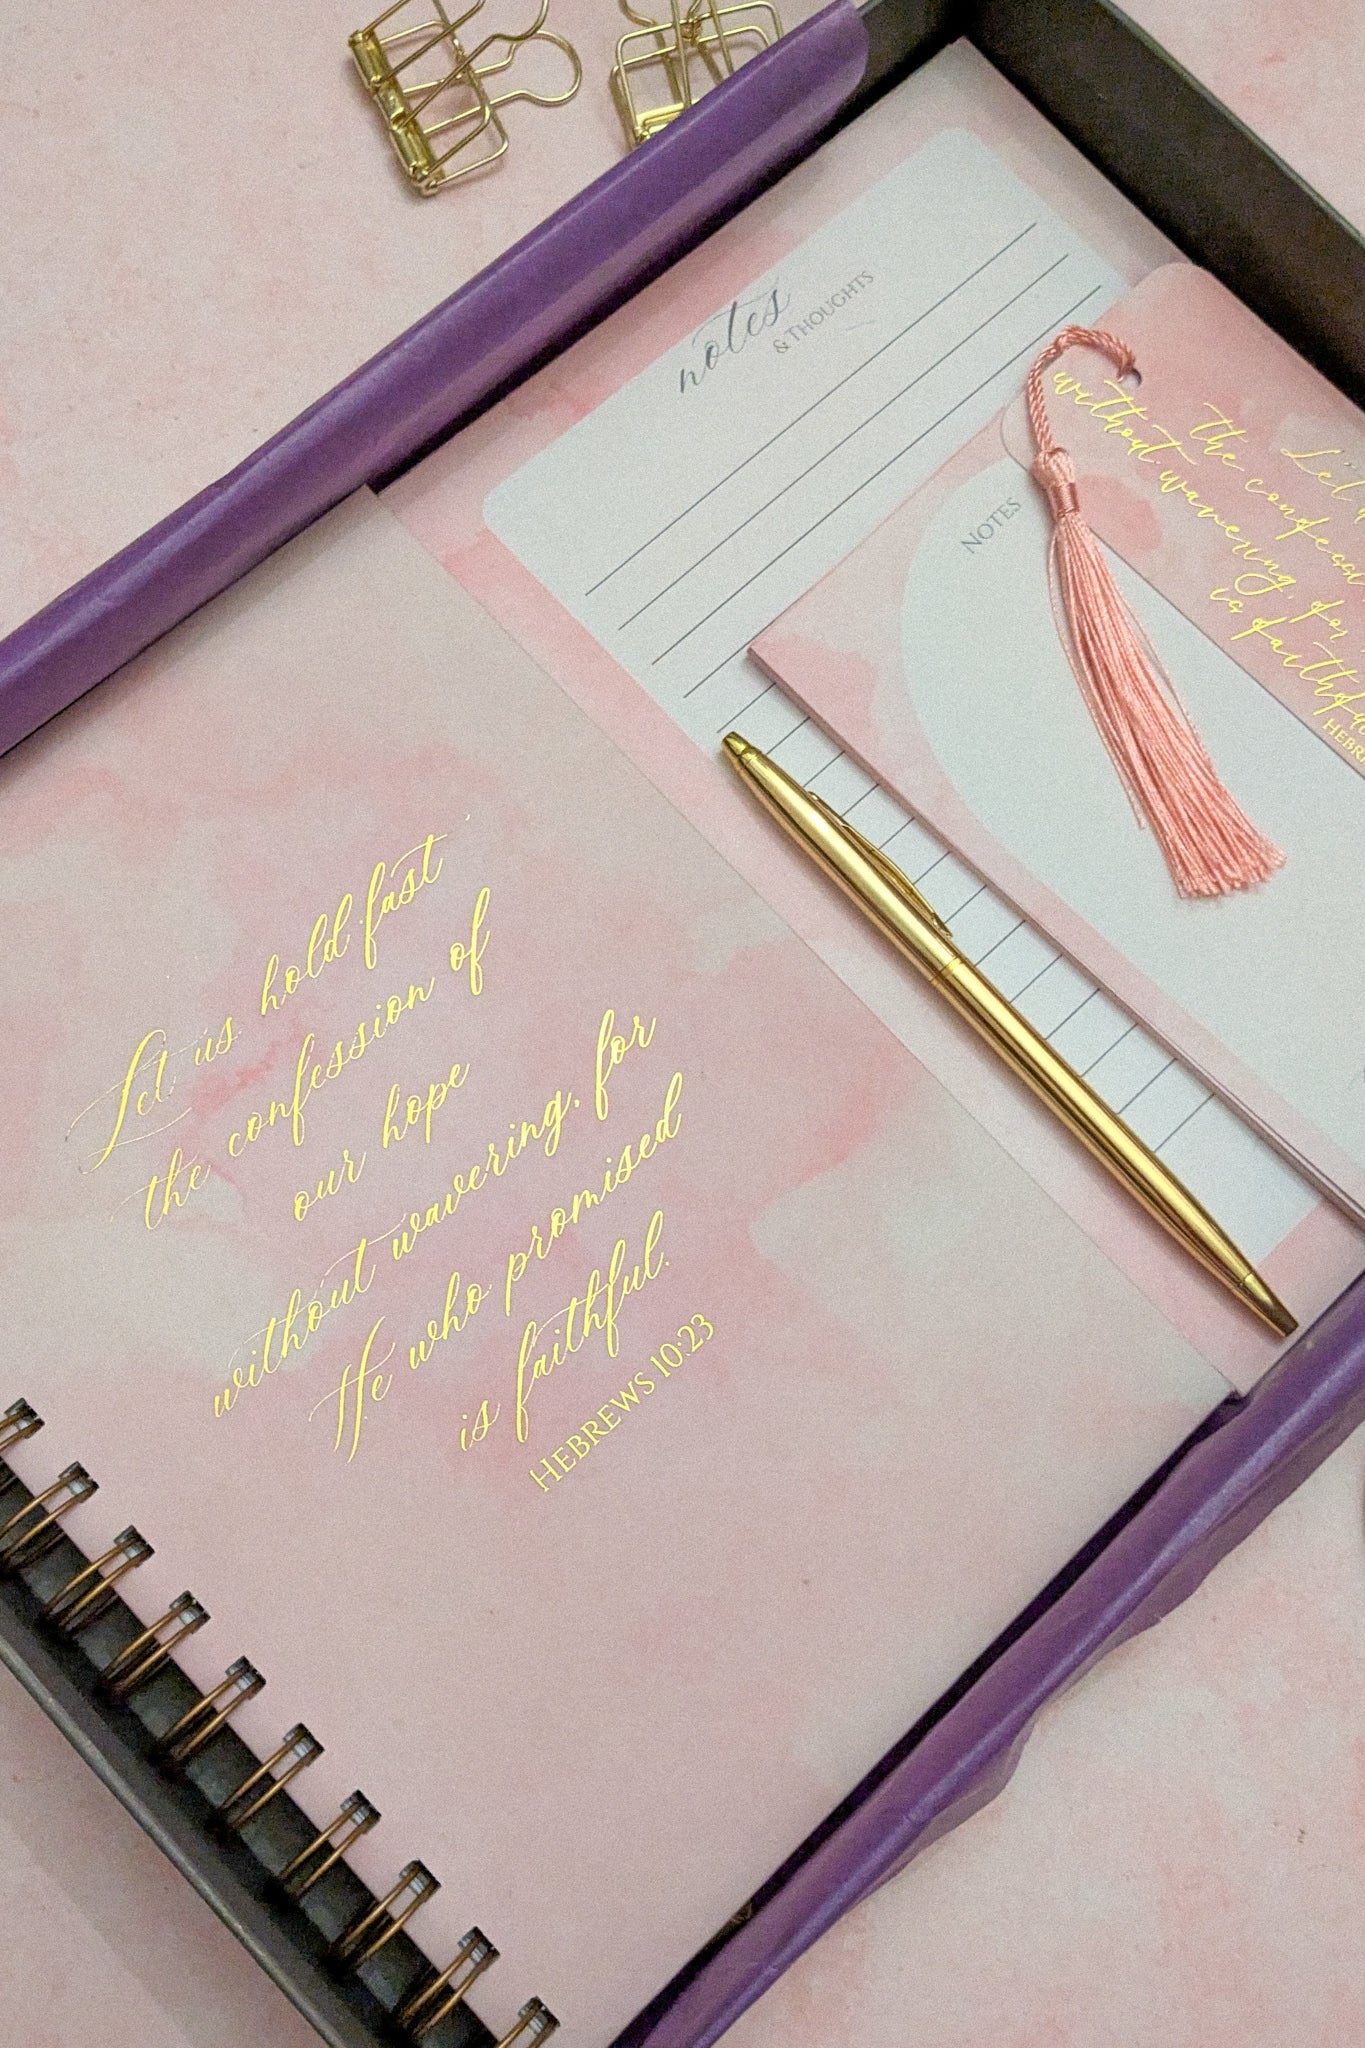 Let us hold fast
the confession of
our hope
without wavering, for
He who promised
is faithful.
HEBREWS 10:23
notes
& THOUGHTS
NOTES
Let
the
without wavering, for
is